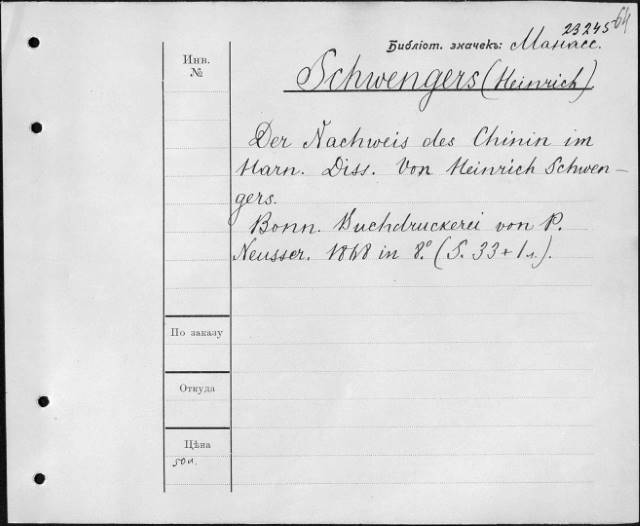 23245 64
Библіот. значекъ: Манасс.
Инв.
№
Schwengers (Heinrich).
Der Nachweis des Chinin im
Harn. Diss. Von Heinrich Schwen-
gers.
Bonn. Buchdruckerei von P.
Neusser. 1868 in 8.º (S. 33 + 1 л.).
По заказу
Откуда
Цѣна
50 к.